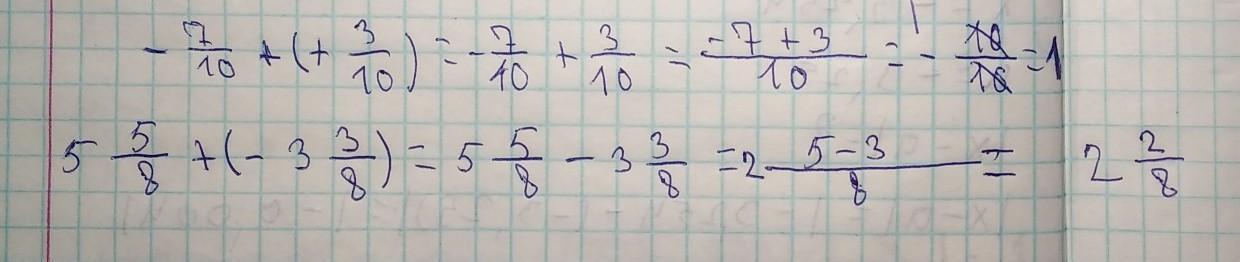 - 7/10 + (+ 3/10) = - 7/10 + 3/10 = -7 + 3/10 = - 10/10 = 1
5 5/8 + (- 3 3/8) = 5 5/8 - 3 3/8 = 2 5 - 3/8 = 2 2/8